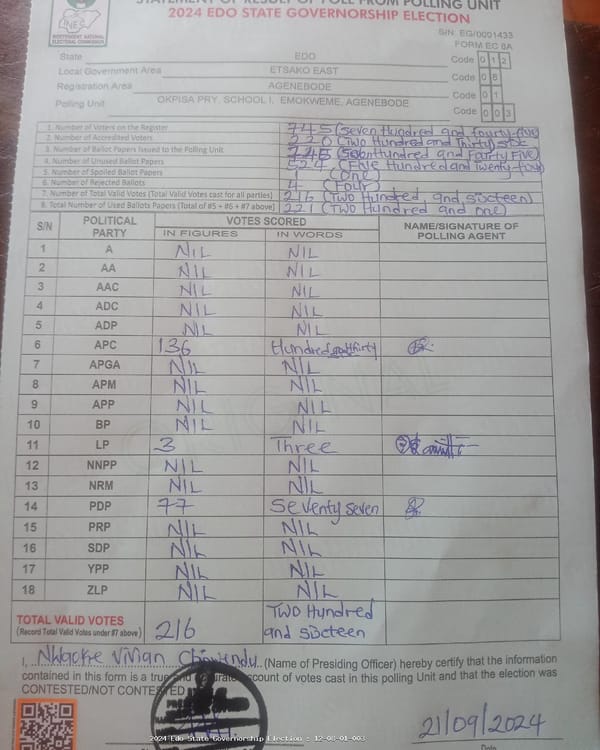 STATEMENT OF RESULT OF POLL FROM POLLING UNIT
2024 EDO STATE GOVERNORSHIP ELECTION
INEC
INDEPENDENT NATIONAL ELECTORAL COMMISSION
S/N EG/0001433
FORM EC 8A
State EDO Code 0 1 2
Local Government Area ETSAKO EAST Code 0 8
Registration Area AGENEBODE Code 0 1
Polling Unit OKPISA PRY. SCHOOL I, EMOKWEME, AGENEBODE Code 0 0 3
1. Number of Voters on the Register 745 (Seven Hundred and fourty-five
2. Number of Accredited Voters (Two Hundred and Thirty) six
3. Number of Ballot Papers Issued to the Polling Unit 745 (Seven Hundred and Fourty Five)
4. Number of Unused Ballot Papers 524 (Five Hundred and Twenty-four)
5. Number of Spoiled Ballot Papers 1 (One)
6. Number of Rejected Ballots 4 (Four)
7. Number of Total Valid Votes (Total Valid Votes cast for all parties) 216 (Two Hundred and sixteen)
8. Total Number of Used Ballots Papers (Total of #5 + #6 + #7 above) 221 (Two Hundred and one)
S/N POLITICAL PARTY VOTES SCORED NAME/SIGNATURE OF POLLING AGENT
IN FIGURES IN WORDS
1 A NIL NIL
2 AA NIL NIL
3 AAC NIL NIL
4 ADC NIL NIL
5 ADP NIL NIL
6 APC 136 Hundred and thirty
7 APGA NIL NIL
8 APM NIL NIL
9 APP NIL NIL
10 BP NIL NIL
11 LP 3 Three
12 NNPP NIL NIL
13 NRM NIL NIL
14 PDP 77 Seventy seven
15 PRP NIL NIL
16 SDP NIL NIL
17 YPP NIL NIL
18 ZLP NIL NIL
TOTAL VALID VOTES 216 Two Hundred
(Record Total Valid Votes under #7 above) and sixteen
I, Nwaoke Vivian (Name of Presiding Officer) hereby certify that the information
contained in this form is a true and accurate account of votes cast in this polling Unit and that the election was
CONTESTED/NOT CONTESTED
21/09/2024
2024 Edo State Governorship Election : 12-08-01-003
Date